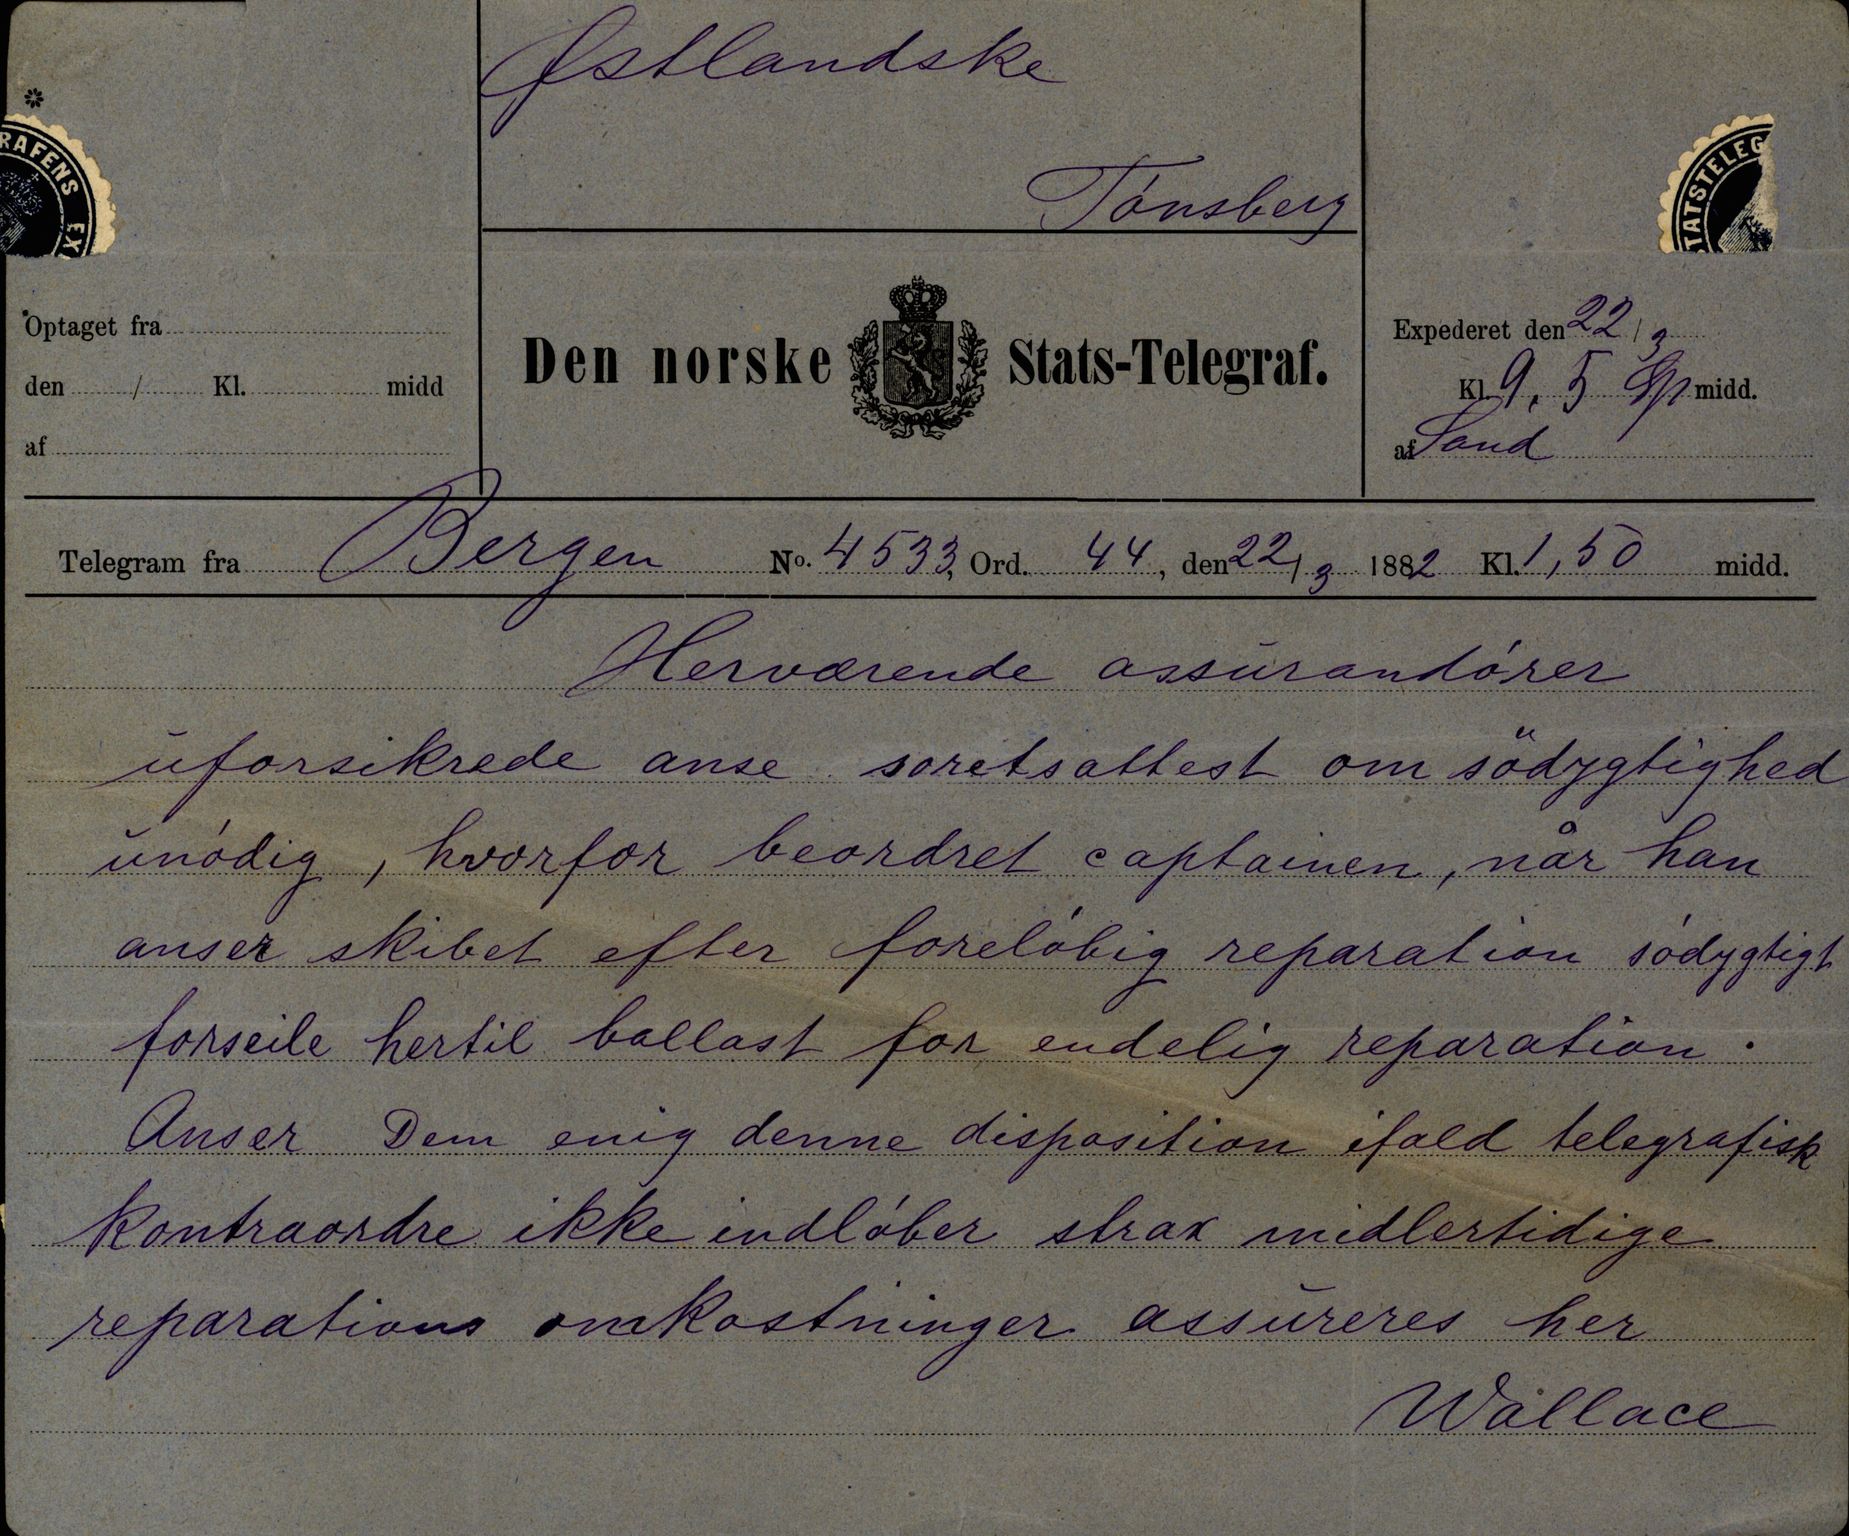 Østlandske
Tónsberg
*
RAFENS EX
TATSTELEG
Optaget fra
den / Kl. midd
af
Den norske Stats-Telegraf.
Expederet den 22/3
Kl. 9,5 midd.
af Sand
Telegram fra Bergen No. 4533, Ord. 44, den 22/3 1882 Kl. 1,50 midd.
Herværende assurandórer
uforsikrede anse soretsattest om södygtighed
unódig, hvorfor beordret captainen, når han
anser skibet efter forelóbig reparation sódygtigt
forseile hertil ballast for endelig reparation.
Anser Dem enig denne disposition ifald telegrafisk
kontraordre ikke indlóber strax midlertidige
reparations omkostninger assureres her
Wallace